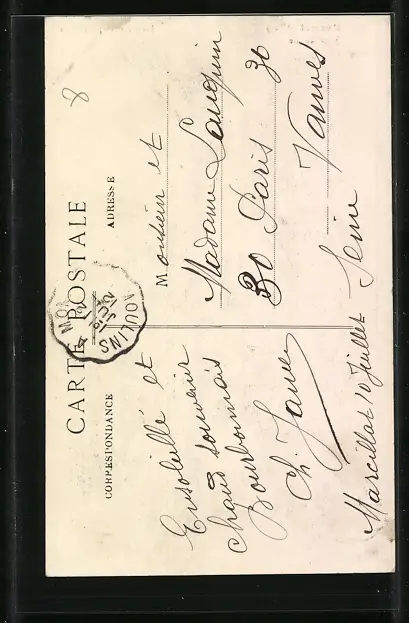 CARTE POSTALE
CORRESPONDANCE
ADRESSE
8
MOULINS
Ensoleillé et
chaud souvenir
Bourbonnais
Ch. Jame
Marcillat 10 Juillet
Monsieur et
Madame Lauquin
30 Paris 30
Vanves
Seine